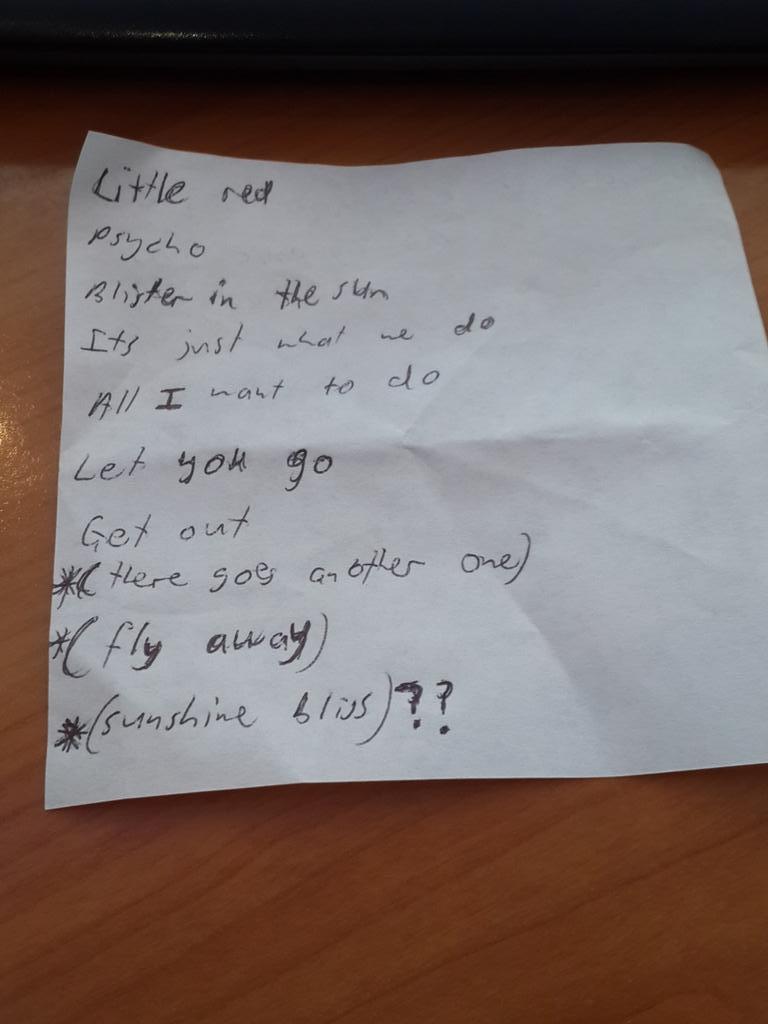 Little red
Psycho
Blister in the sun
Its just what we do
All I want to do
Let you go
Get out
*(there goes another one)
*(fly away)
*(sunshine bliss)??